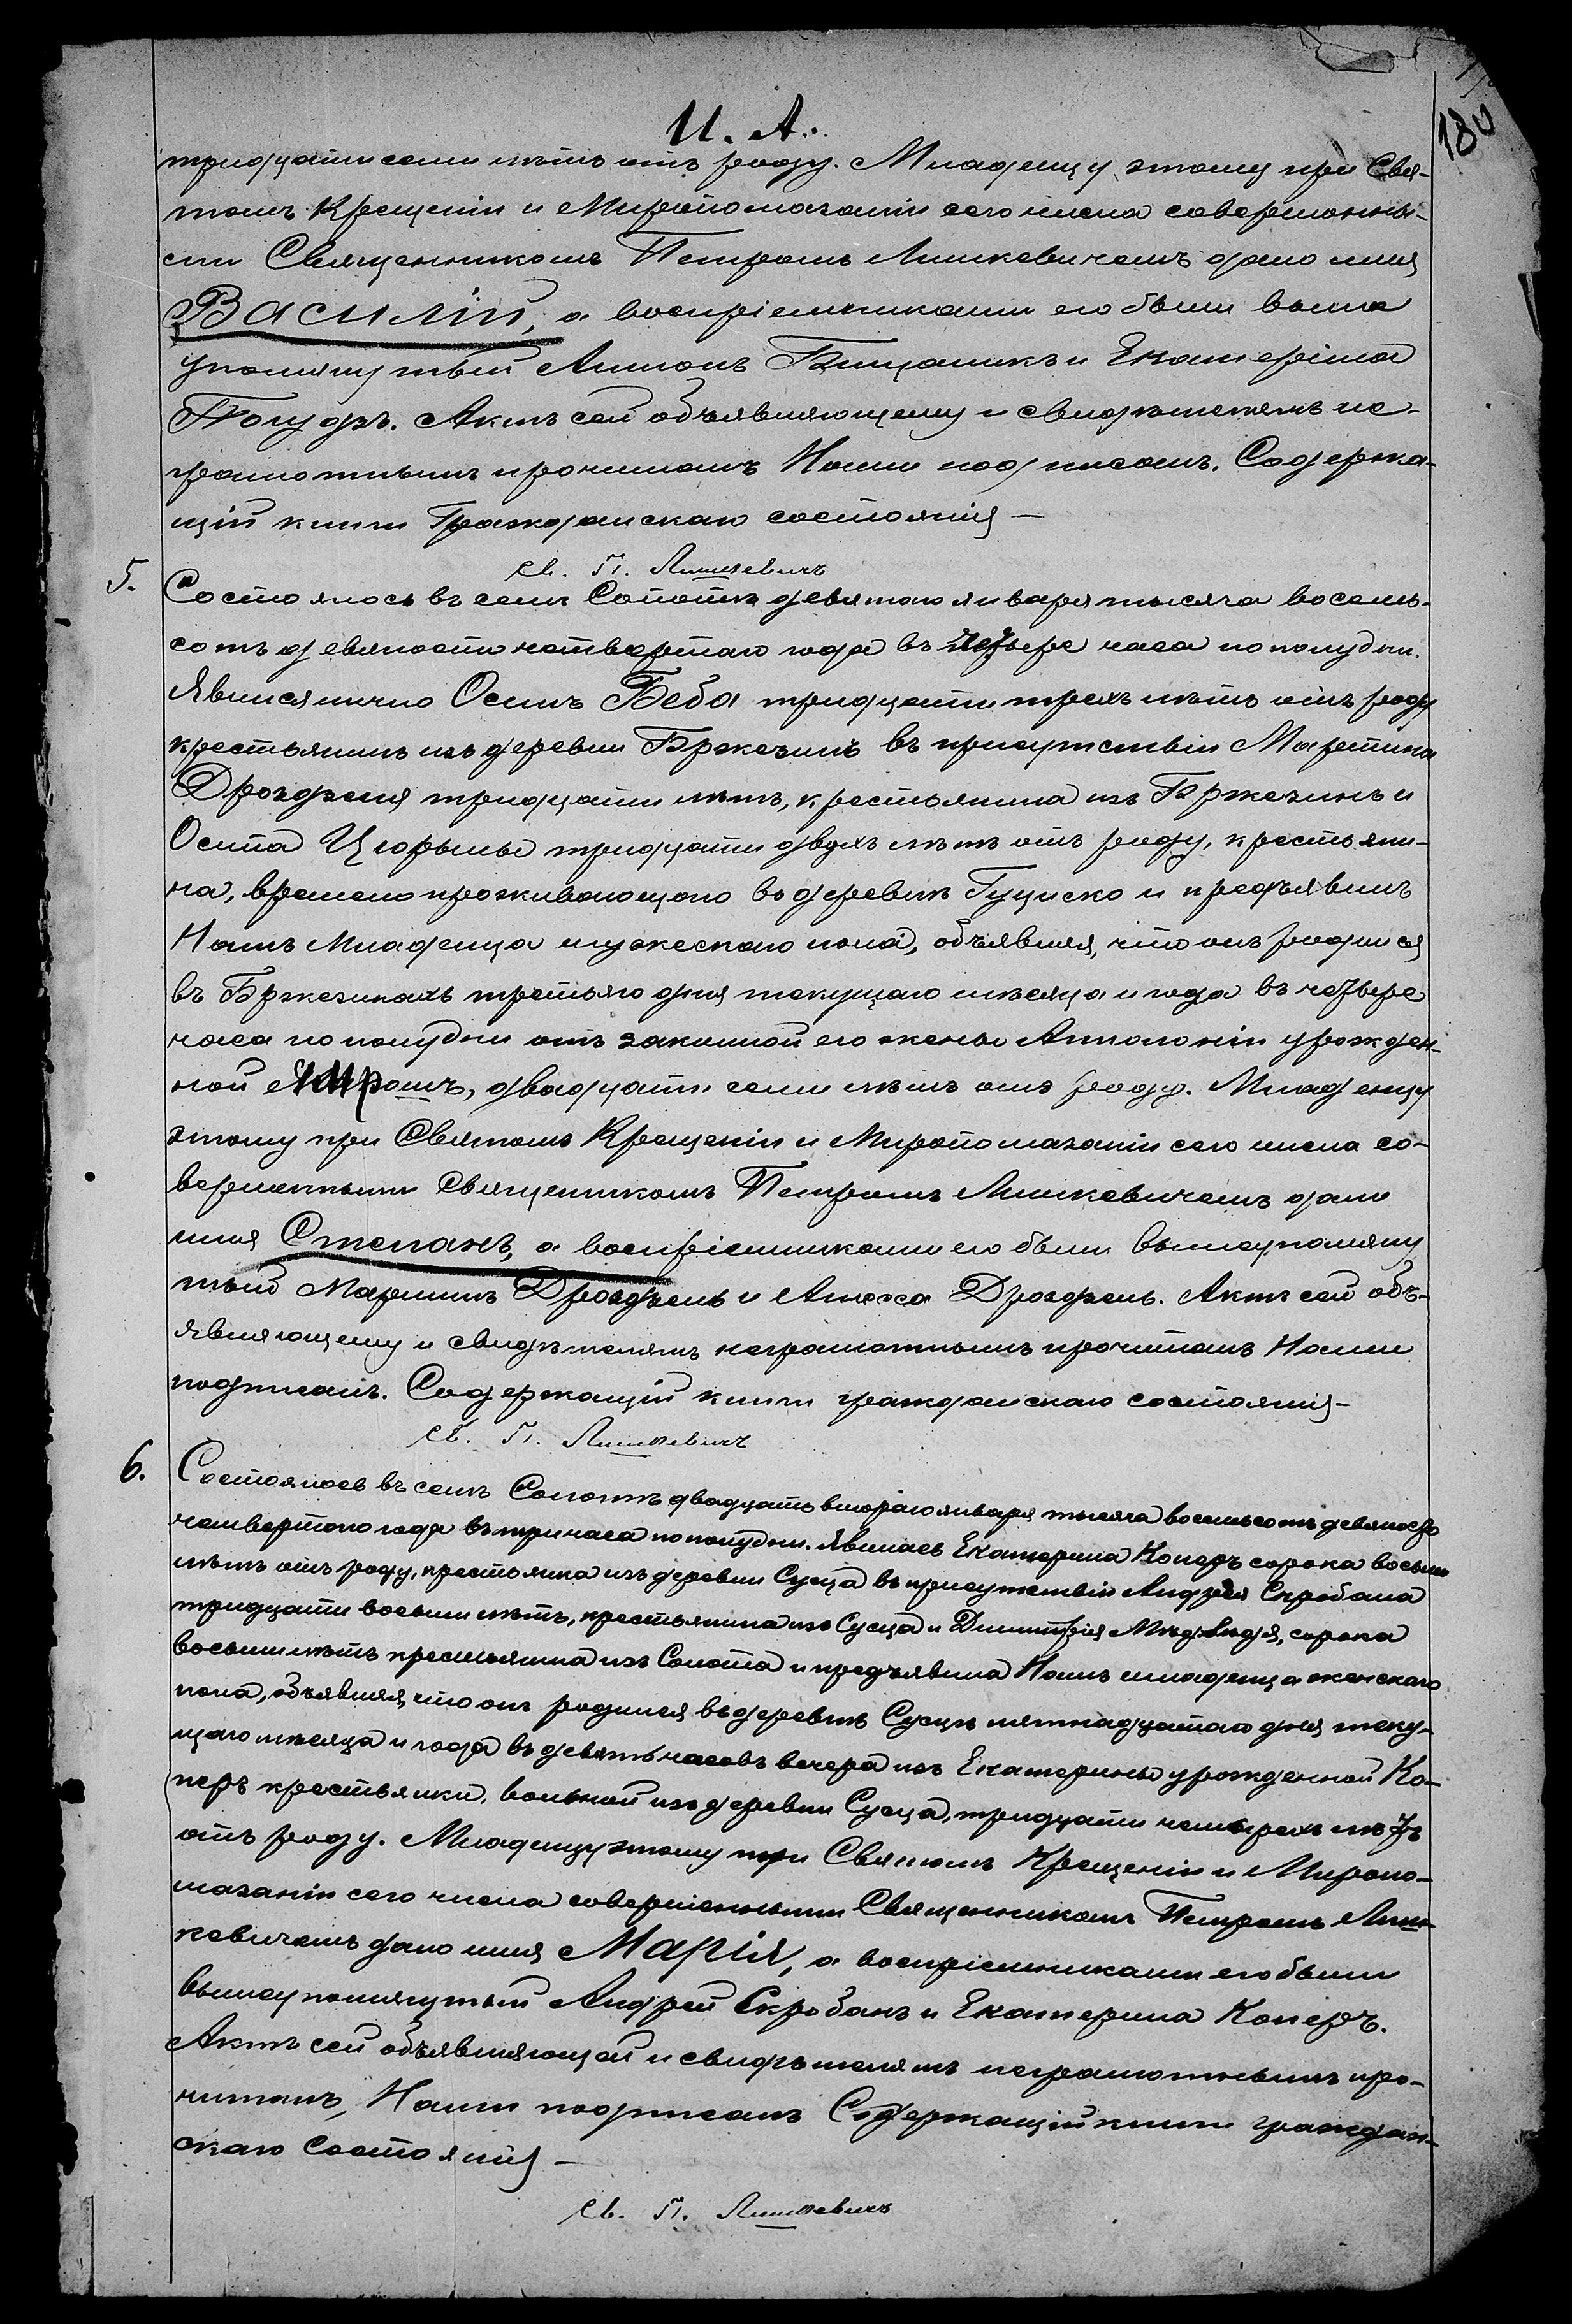 И. А.
180
тридцати семи лѣтъ отъ роду. Младенцу этому при Свя-
томъ Крещеніи и Миропомазаніи сего числа совершонны-
ми Священникомъ Петромъ Лишкевичемъ дано имя
Василій, а воспріемниками его были выше
упомянутый Антонъ и Екатерина
Актъ сей объявляющему и свидѣтелямъ не-
грамотнымъ прочитанъ Нами подписанъ. Содержа-
щій книги Гражданскаго состоянія —
Св. П. Лишкевичъ
5.
Состоялось въ селѣ Сопотѣ девятаго января тысяча восемь-
сотъ девяносто четвертаго года въ четыре часа по полудни.
Явился лично Осипъ Беба тридцати трехъ лѣтъ отъ роду
крестьянинъ изъ деревни Бржезинъ въ присутствіи Мартина
Дроздзеля тридцати лѣтъ, крестьянина изъ Бржезинъ и
Осипа тридцати двухъ лѣтъ отъ роду, крестьяни-
на, времено проживающаго въ деревнѣ Гуциско и предъявилъ
Намъ Младенца мужескаго пола, объявляя, что онъ родился
въ Бржезинахъ третьяго дня текущаго мѣсяца и года въ четыре
часа по полудни отъ законной его жены Апполоніи урожден-
ной двадцати семи лѣтъ отъ роду. Младенцу
этому при Святомъ Крещеніи и Миропомазаніи сего числа со-
вершенными Священникомъ Петромъ Лишкевичемъ дано
имя Степанъ, а воспріемниками его были вышеупомяну
тый Мартинъ Дроздзель и Дроздзель. Актъ сей объ-
являющему и свидѣтелямъ неграмотнымъ прочитанъ Нами
подписанъ. Содержащій книги гражданскаго состоянія —
Св. П. Лишкевичъ
6.
Состоялось въ селѣ Сопотѣ двадцать втораго января тысяча восемьсотъ девяносто
четвертаго года въ три часа по полудни. Явилась Екатерина Коперъ сорока восьми
лѣтъ отъ роду, крестьянка изъ деревни Сусца въ присутствіи Андрея Скробана
тридцати восьми лѣтъ, крестьянина изъ Сусца и Димитрія Мѣдвѣдя, сорока
восьми лѣтъ крестьянина изъ Сопота и предъявила Намъ младенца женскаго
пола, объявляя, что онъ родился въ деревнѣ Сусцѣ пятнадцатаго дня теку-
щаго мѣсяца и года въ девять часовъ вечера изъ Екатерины урожденной Ко-
перъ крестьянки, вольной изъ деревни Сусца, тридцати четырехъ лѣтъ
отъ роду. Младенцу этому при Святомъ Крещеніи и Миропо-
мазаніи сего числа совершенными Священникомъ Петромъ Лиш-
кевичемъ дано имя Марія, а воспріемниками его были
вышеупомянутый Андрей Скробанъ и Екатерина Коперъ.
Актъ сей объявляющей и свидѣтелямъ неграмотнымъ про-
читанъ, Нами подписанъ Содержащій книги граждан-
скаго Состоянія —
Св. П. Лишкевичъ